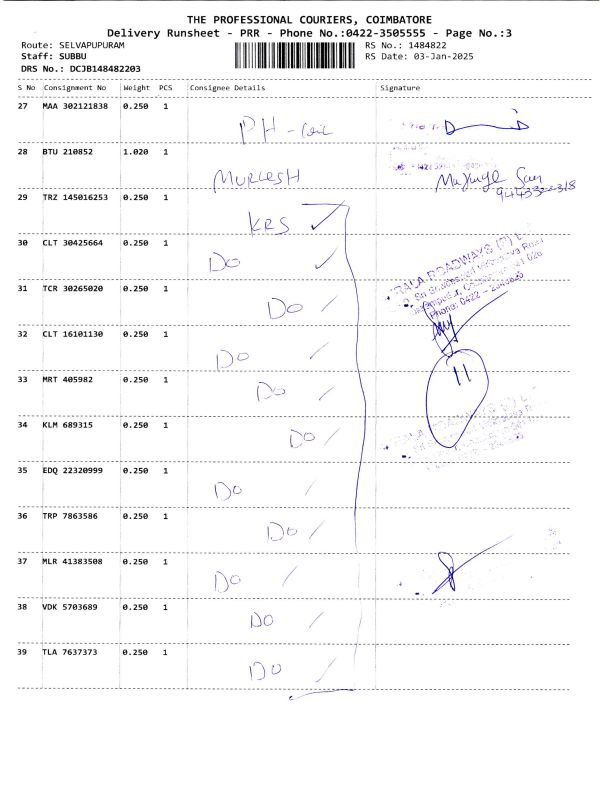 THE PROFESSIONAL COURIERS, COIMBATORE
Delivery Runsheet - PRR - Phone No.:0422-3505555 - Page No.:3
Route: SELVAPUPURAM RS No.: 1484822
Staff: SUBBU RS Date: 03-Jan-2025
DRS No.: DCJB148482203
S No Consignment No Weight PCS Consignee Details Signature
27 MAA 302121838 0.250 1 PH -
28 BTU 210852 1.020 1 MURGESH
29 TRZ 145016253 0.250 1 KRS ✓
30 CLT 30425664 0.250 1 DO ✓
31 TCR 30265020 0.250 1 DO /
32 CLT 16101130 0.250 1 DO /
33 MRT 405982 0.250 1 DO / 11
34 KLM 689315 0.250 1 DO /
35 EDQ 22320999 0.250 1 DO /
36 TRP 7863586 0.250 1 DO /
37 MLR 41383508 0.250 1 DO /
38 VDK 5703689 0.250 1 DO /
39 TLA 7637373 0.250 1 DO /